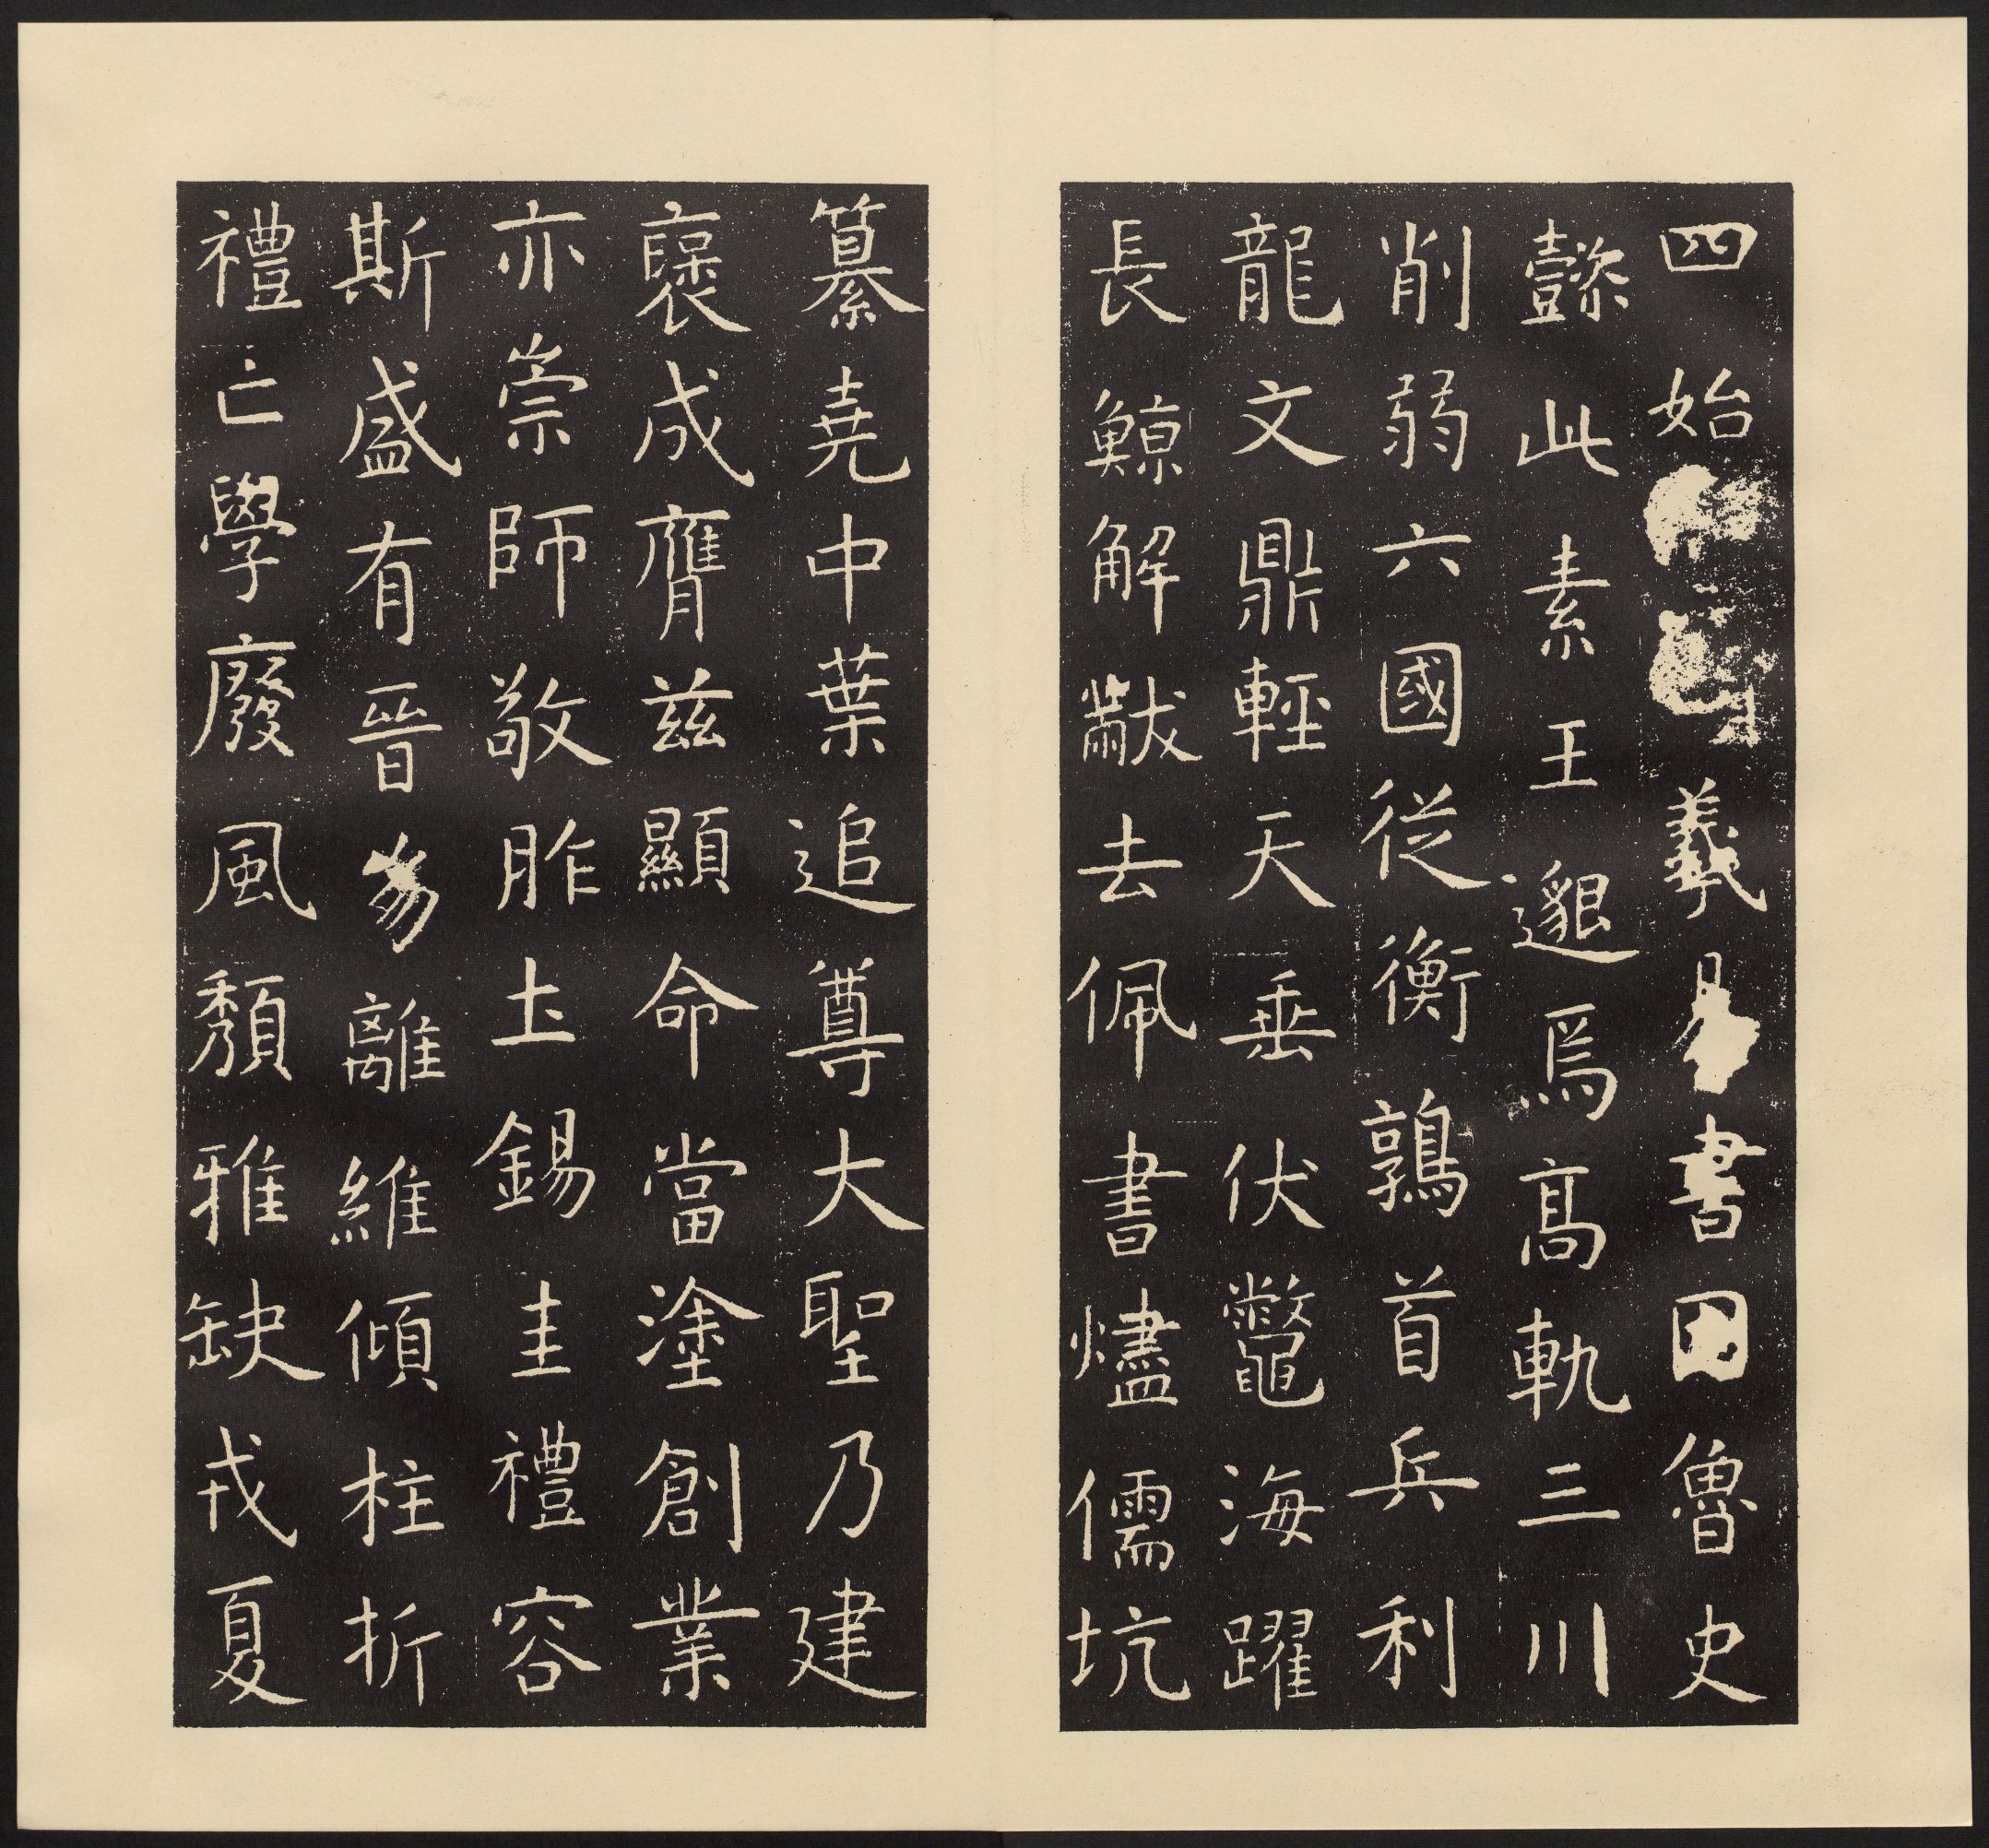 四始羲書魯史
懿此素王邈焉髙軌三川
削弱六國從衡鶉首兵利
龍文鼎輕天垂伏鼈海躍
長鯨解黻去佩書燼儒坑
纂堯中葉追尊大聖乃建
襃成膺兹顯命當塗創業
亦崇師敬胙土錫圭禮容
斯盛有晉離維傾柱折
禮亡學廢風頽雅缺戎夏